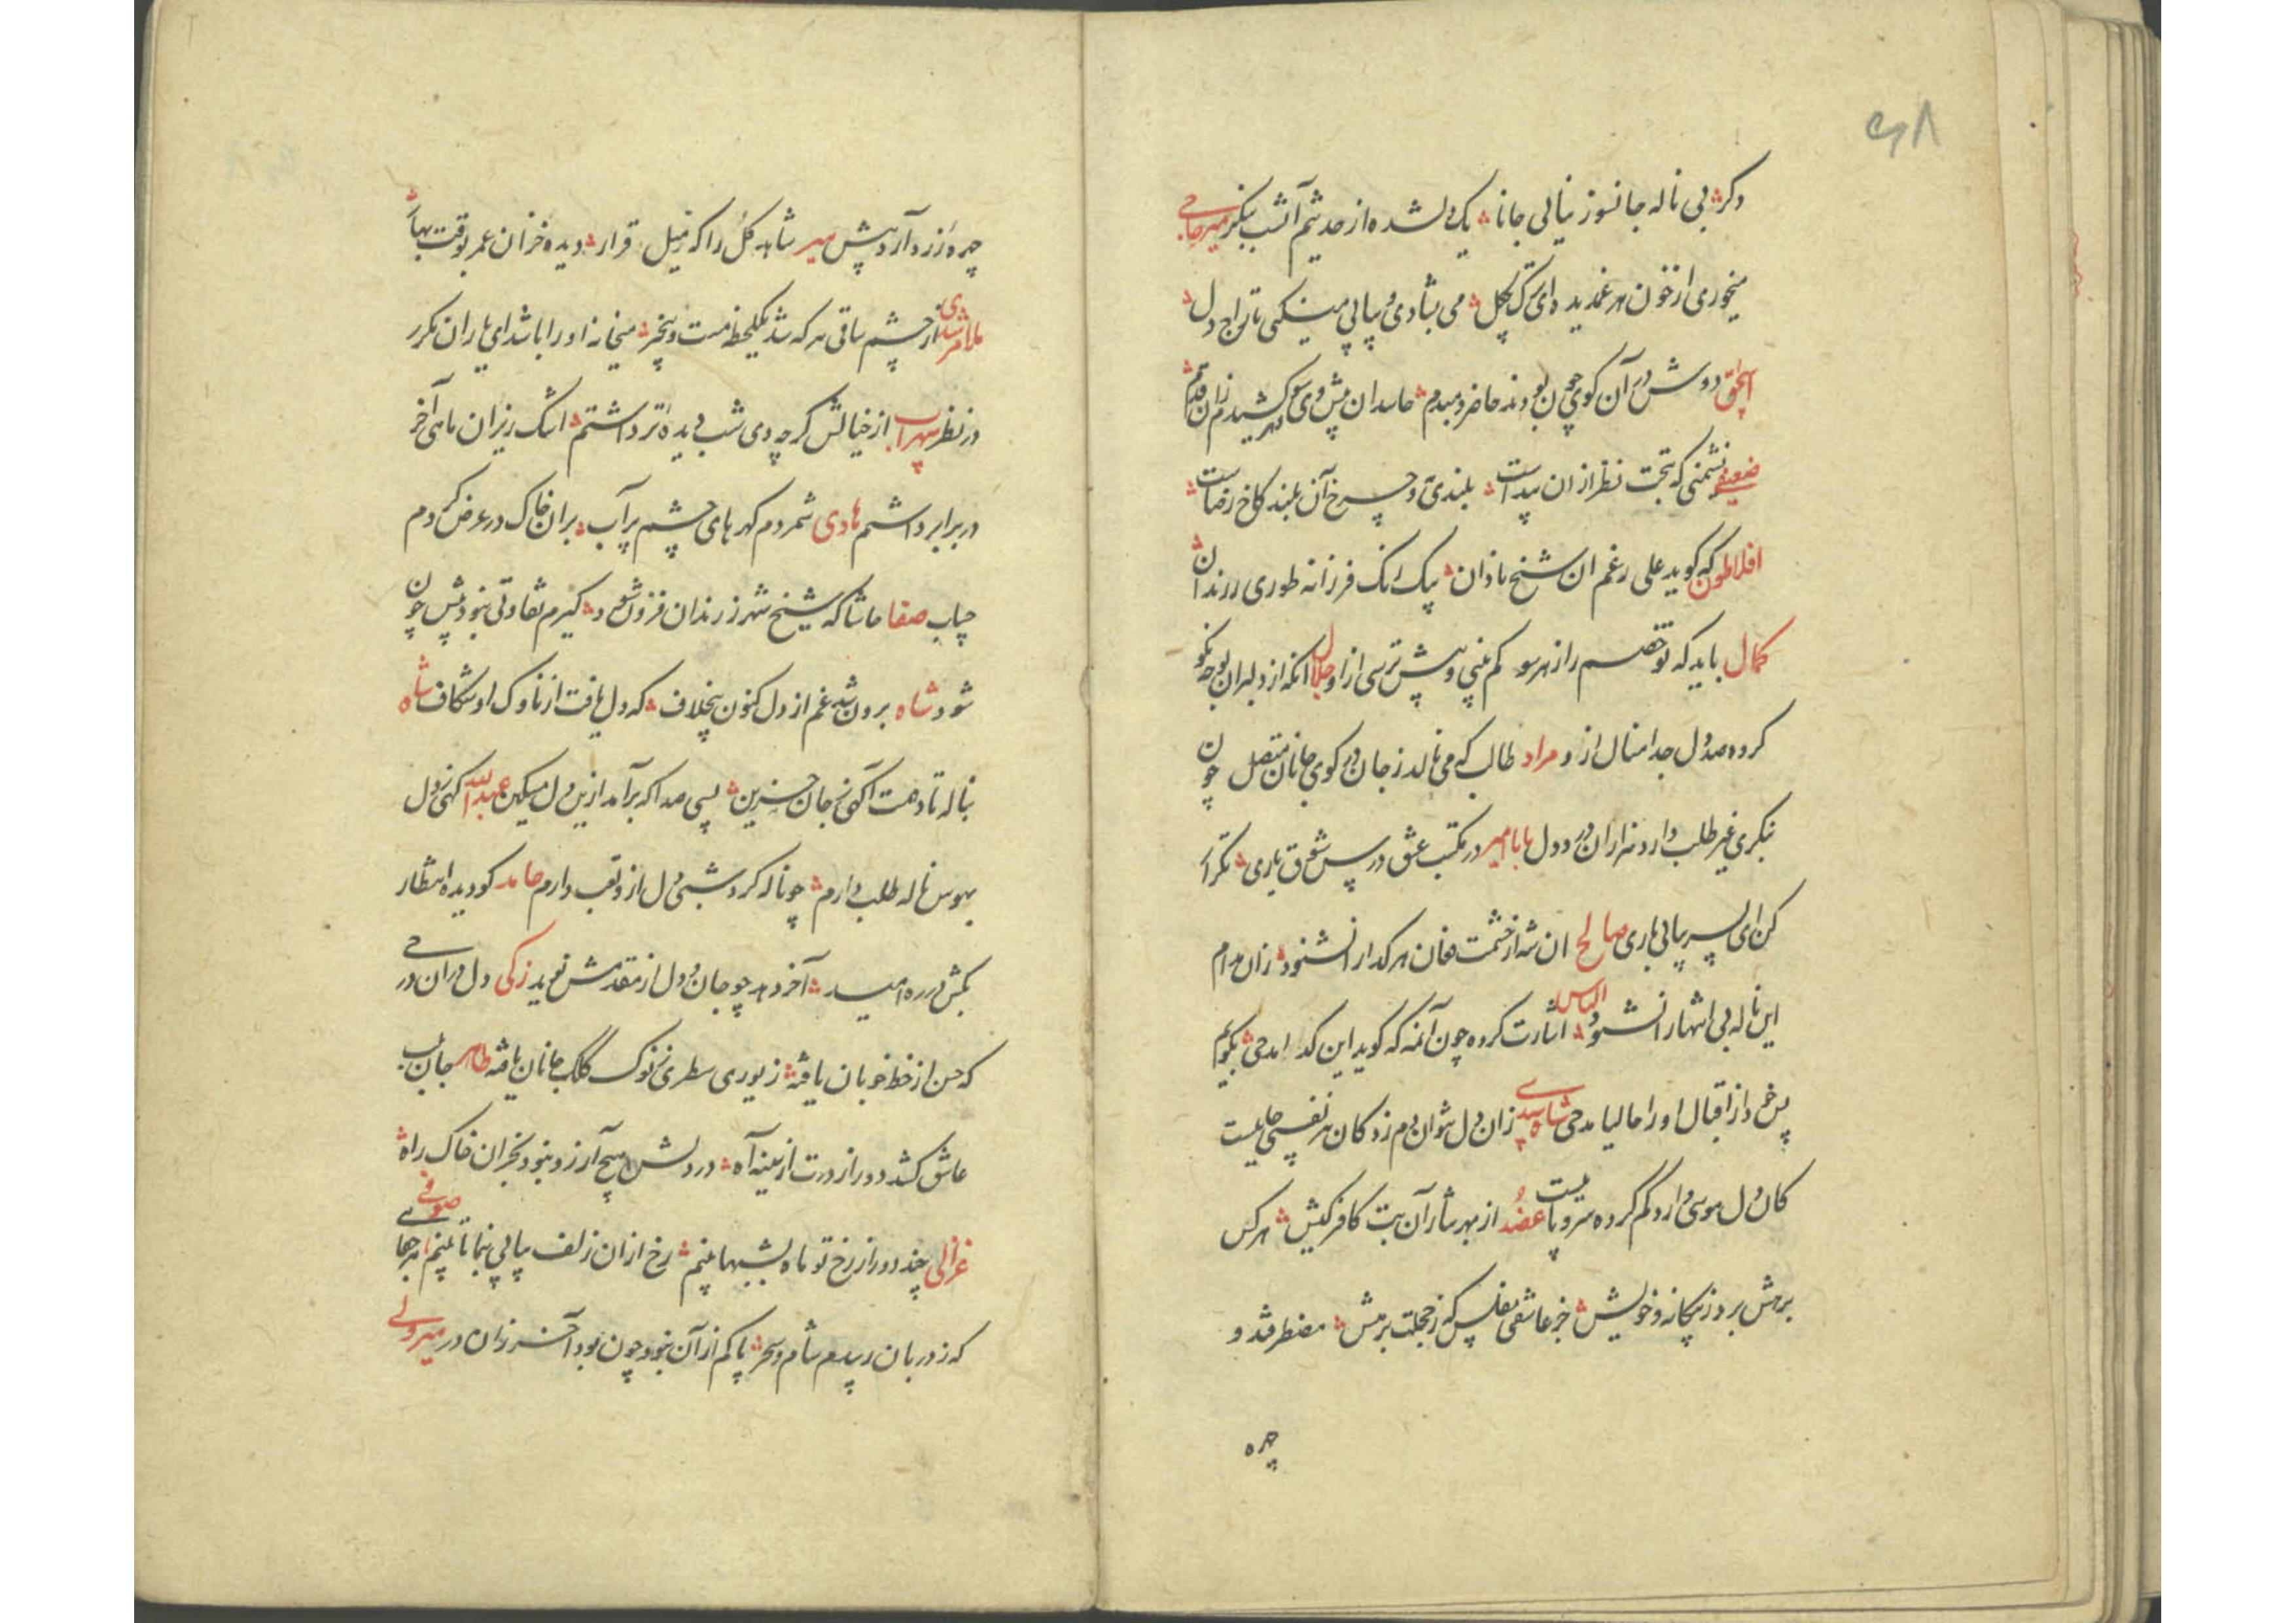 ۶۸
دکر بی ناله جانسوز نیایی جانا یک دل شده از حد شیم آتشب بنکر میرحاجی
میخوری از خون هر غمدیده ای ترک چکل می بشادی و پیاپی میکنی تاراج دل
اسحق دوش در آن کوی چون بودند حاضر دمبدم حاسدان پیش وی سوی کشیدم زان قدم
ضعیفی نشمنی که تحت نظر ازان پیداست بلندی و چرخ آن بلند کاخ رضاست
افلاطون که کوید علی رغم ان شیخ نادان یک رنک فرزانه طوری ز رندان
کمال باید که تو خصم را ز هر سو کم بینی و بیش ترسی از او جلال انکه از دلبران بوجه نکو
کرده صد دل جدا منال از و مراد طالب که می نالد ز جان در کوی جانان متصل چون
بنکری غیر طلب دارد هزاران درد دل بابا میر در مکتب عشق در پس شوق یاری تکرار
کن ای پسر پیاپی یاری صالح ان شه از خشمت فغان هر کدا را نشنود زان مدام
این ناله بی انتها را نشنود الیاس اشارت کرده چون آنمه که کوید این کدا مدحی بکویم
پس خود از اقبال او را حالیا مدحی شاهدی زان دل نتوان دم زد کان هر نفسی جاییست
کان دل موسی دارد کم کرده سر و پاییست عضد از بهر نثار آن بت کافر کیش هر کس
برهش برد ز بیکانه و خویش جز عاشق مفلس که ز خجلت برهش مضطر شد و
چهره
چهرهٔ زرد آرد پیش میر شاهد کل را که ز میل قرار دیده خزان عمر بوقت بهار
ملا مرشدی از چشم ساقی هر که شد یکلحظه مست و بیخبر میخانه او را باشد ای یاران مکرر
در نظر سهراب از خیالش کرچه دی شب دیدهٔ تر داشتم اشک ریزان تا بآخر
در برابر داشتم هادی شمردم کهر های چشم پر آب بران خاک در عرض کردم
حباب صفا حاشا که شیخ شهر ز رندان فزون شود کیرم تفاوتی نبود پیش چون
شود شاه برون شد غم از دل کنون بیخلاف که دل یافت از ناوک او شکاف شاه
بناله تا دهت آکهی ز جان حزین بسی صدا که برآمد ازین دل مسکین عبدالله کهی ز دل
بهوس ناله طلب دارم چو ناله کرد شبی دل ازو تعب دارم حامد کو دیده انتظار
بکش در ره امید آخر دهد چو جان و دل از مقدمش نوید زکی دل در ان در
که حسن از خط خوبان یافته زیوری سطری ز نوک کلک جانان یافته طاهر جان بلب
عاشق کشد دور از درت از سینه آه در دلش هیچ آرزو نبود بجز ان خاک راه صوفی
غزالی چند دور از رخ تو ماه بشبها بینم رخ ازان زلف پیاپی بنما تا بینم هر جها
که ز دربان رسیدم شام و سحر پا کم از آن نبود چون بود آخر زان در میرولی